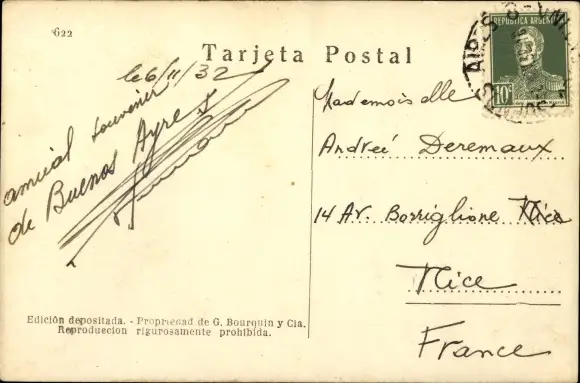 622
Tarjeta Postal
REPUBLICA ARGENTINA
10c
AIRES
le 6/11/32
amical souvenir
de Buenos Ayres
Mademoiselle
Andreé Deremaux
14 Av. Borriglione Nice
Nice
France
Edición depositada. - Propriedad de G. Bourquin y Cia.
Reproduccion rigurosamente prohibida.